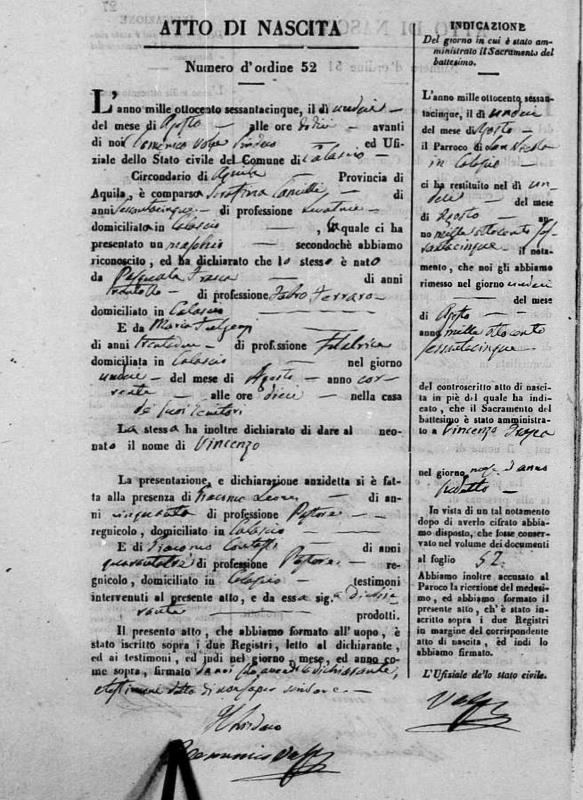 ATTO DI NASCITA
Numero d'ordine 52
L'anno mille ottocento sessantacinque, il dì undici
del mese di Agosto alle ore dodici avanti
di noi Domenico Volpe Sindaco ed Ufi-
ziale dello Stato civile del Comune di Calascio
Circondario di Aquila Provincia di
Aquila, è comparsa Serafina di
anni sessantacinque di professione
domiciliata in Calascio, la quale ci ha
presentato un maschio secondochè abbiamo
riconoscito, ed ha dichiarato che lo stesso è nato
da Pasquale di anni
trentotto di professione Fabro Ferraro
domiciliato in Calascio
E da Maria
di anni trentadue di professione Filatrice
domiciliata in Calascio nel giorno
undici del mese di Agosto anno cor-
rente alle ore dieci nella casa
de' suoi Genitori
La stessa ha inoltre dichiarato di dare al neo-
nato il nome di Vincenzo
La presentazione, e dichiarazione anzidetta si è fat-
ta alla presenza di Giacomo di an-
ni cinquanta di professione Pastore
regnicolo, domiciliato in Calascio
E di Giacomo di anni
quarantatre di professione Pastore re-
gnicolo, domiciliato in Calascio testimoni
intervenuti al presente atto, e da essa sig.a dichia-
rante prodotti.
Il presente atto, che abbiamo formato all'uopo, è
stato iscritto sopra i due Registri, letto al dichiarante,
ed ai testimoni, ed indi nel giorno, mese, ed anno co-
me sopra, firmato da noi dichiarante,
e testimoni detto di non saper scrivere
Il Sindaco
Domenico Volpe
INDICAZIONE
Del giorno in cui è stato am-
ministrato il Sacramento del
battesimo.
L'anno mille ottocento sessan-
tacinque, il dì undici
del mese di Agosto
il Parroco di San Nicola
in Calascio
ci ha restituito nel dì un-
dici del mese
di Agosto an-
no mille ottocento ses-
santacinque il nota-
mento, che noi gli abbiamo
rimesso nel giorno undici
del mese
di Agosto
anno mille ottocento
sessantacinque
del controscritto atto di nasci-
ta in piè del quale ha indi-
cato, che il Sacramento del
battesimo è stato amministra-
to a Vincenzo
nel giorno mese ed anno
sudetto
In vista di un tal notamento
dopo di averlo cifrato abbia-
mo disposto, che fosse conser-
vato nel volume dei documenti
al foglio 52
Abbiamo inoltre accusato al
Paroco la ricezione del medesi-
mo, ed abbiamo formato il
presente atto, ch'è stato in-
scritto sopra i due Registri
in margine del corrispondente
atto di nascita, ed indi lo
abbiamo firmato.
L'Ufiziale dello stato civile.
Volpe